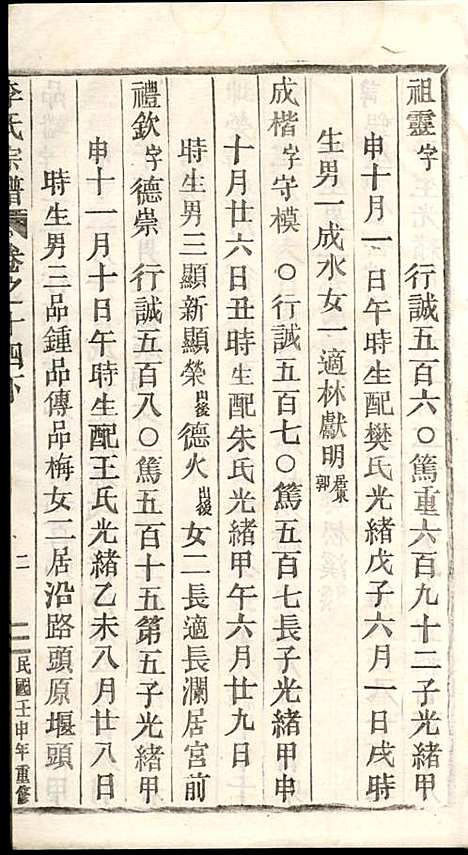 祖靈字 行誠五百六〇篤重六百九十二子光緒甲
申十月一日午時生配樊氏光緒戊子六月一日戌時
生男一成水女一適林獻明
成楷字守模〇行誠五百七〇篤五百七長子光緒甲申
十月廿六日丑時生配朱氏光緒甲午六月廿九日
時生男三顯新顯榮出後德火出後女二長適長瀾居宮前
禮欽字德崇行誠五百八〇篤五百十五第五子光緒甲
申十一月十日午時生配王氏光緒乙未八月廿八日
時生男三品鍾品傳品梅女二居沿路頭原堰頭
李氏宗譜 卷之十四 二
民國壬申年重修